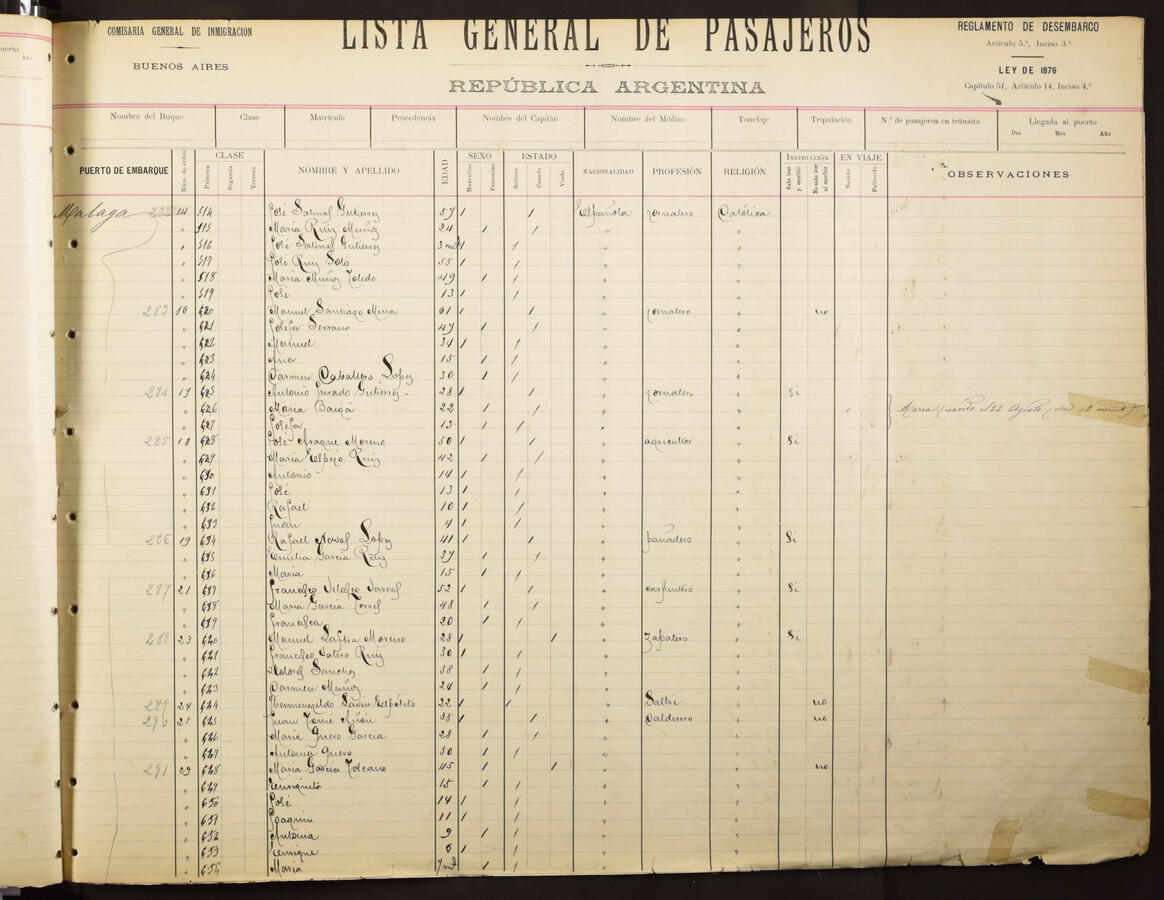 COMISARIA GENERAL DE INMIGRACION
BUENOS AIRES
LISTA GENERAL DE PASAJEROS
REPÚBLICA ARGENTINA
REGLAMENTO DE DESEMBARCO
Artículo 5.º, Inciso 3.º
LEY DE 1876
Capítulo 51, Artículo 14, Inciso 4.º
Nombre del Buque Clase Matrícula Procedencia Nombre del Capitán Nombre del Médico Tonelaje Tripulación N.º de pasajeros en tránsito Llegada al puerto
Día Mes Año
PUERTO DE EMBARQUE Núm. de órden CLASE Primera Segunda Tercera NOMBRE Y APELLIDO EDAD SEXO Masculino Femenino ESTADO Soltero Casado Viudo NACIONALIDAD PROFESIÓN RELIGIÓN INSTRUCCIÓN Sabe leer y escribir No sabe leer ni escribir EN VIAJE Nacido Fallecido OBSERVACIONES
Malaga 282 14 514 José Salinas Gutierrez 57 / / Española jornalero Católica
" 515 Maria Ruiz Muñoz 24 / / " "
" 516 José Salinas Gutierrez 3 / / " "
" 517 José Ruiz Soto 55 / / " "
" 518 Maria Muñoz Toledo 49 / / " "
" 519 José 13 / / " "
283 16 620 Manuel Santiago Mena 61 / / " jornalero " no
" 621 Josefa Serrano 47 / / " "
" 622 Manuel 34 / / " "
" 623 Ana 15 / / " "
" 624 Carmen Caballero Lopez 30 / / " "
284 17 625 Antonio Jurado Gutierrez 28 / / " jornalero " Si
" 626 Maria 22 / / " "
" 627 Josefa 13 / / " "
285 18 628 José Araque Moreno 50 / / " agricultor " Si
" 629 Maria Espejo Ruiz 42 / / " "
" 630 Antonio 14 / / " "
" 631 José 13 / / " "
" 632 Rafael 10 / / " "
" 633 Juan 4 / / " "
286 19 634 Rafael Lopez 41 / / " panadero " Si
" 635 Emilia Garcia Ruiz 37 / / " "
" 636 Maria 15 / / " "
287 21 637 Francisco 52 / / " carpintero " Si
" 638 Maria Garcia Torres 48 / / " "
" 639 Francisca 20 / / " "
288 23 640 Manuel Moreno 28 / / " zapatero " Si
" 641 Francisco Ruiz 30 / / " "
" 642 Dolores Sanchez 58 / / " "
" 643 Carmen Muñoz 24 / / " "
289 24 624 Hermenegildo Espósito 22 / / " Sastre " no
290 25 625 Juan 35 / / " Calderero " no
" 626 Maria Garcia 28 / / " "
" 627 Antonia 50 / / " "
291 29 628 Maria Garcia Toscano 45 / / " " no
" 629 Enriqueta 15 / / " "
" 650 José 14 / / " "
" 651 Joaquin 11 / / " "
" 652 Antonia 9 / / " "
" 653 Enrique 6 / / " "
" 654 Maria / / " "